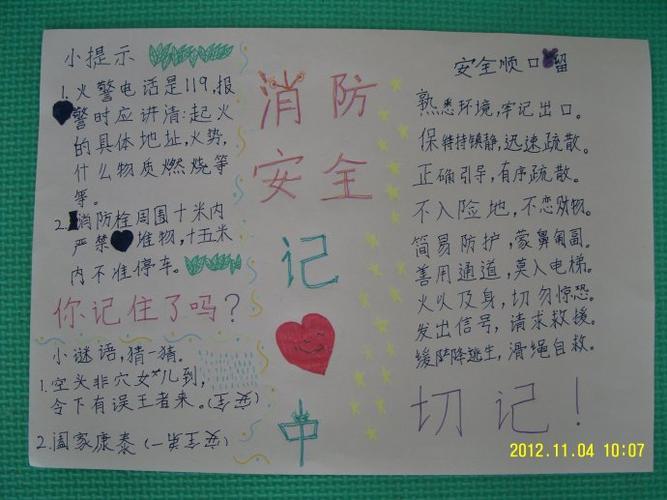 小提示
1.火警电话是119,报
警时应讲清:起火
的具体地址,火势,
什么物质燃烧等
等。
2.消防栓周围十米内
严禁堆物,十五米
内不准停车。
你记住了吗?
小谜语,猜一猜。
1.空头非穴女儿到,
令下有误王者来。(安全)
2.阖家康泰(一类安全)
消防
安全
记
中
安全顺口留
熟悉环境,牢记出口。
保持镇静,迅速疏散。
正确引导,有序疏散。
不入险地,不恋财物。
简易防护,蒙鼻匍匐。
善用通道,莫入电梯。
火火及身,切勿惊恐。
发出信号,请求救援。
缓降逃生,滑绳自救。
切记!
2012.11.04 10:07